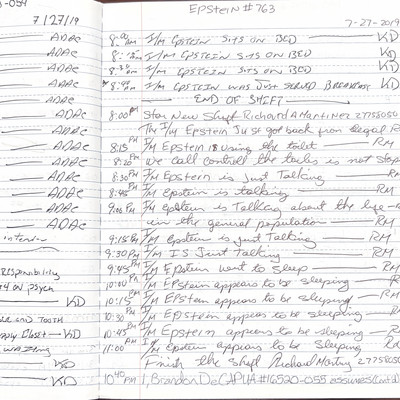 -054
7/27/19
ADAC
ADAC
ADAC
ADAC
ADAC
ADAC
ADAC
ADAC
ADAC
ADAC
ADAC
Responsibility
on psych
KD
and Tooth
Closet — KD
KD
KD
Epstein #763
7-27-2019
I/M Epstein sits on bed — KD
I/M Epstein sits on bed — KD
I/M Epstein sits on bed — KD
I/M Epstein was just served breakfast KD
— End of shift —
8:00 PM Star New Shift Richard A Martinez 27758050
The I/M Epstein Just got back from legal
8:15 PM I/M Epstein is using the toilet — RM
We call controll the is not stop
8:30 PM I/M Epstein is Just Talking — RM
8:45 PM I/M Epstein is talking — RM
9:00 PM I/M Epstein is Talking about the life
in the general population — RM
9:15 PM I/M Epstein is Just Talking — RM
9:30 PM I/M IS Just Talking — RM
9:45 PM I/M Epstein went to sleep — RM
10:00 PM I/M Epstein appears to be sleeping — R
10:15 PM I/M Epstein appears to be sleeping — RM
10:30 PM I/M Epstein appears to be sleeping — RM
10:45 PM I/M Epstein appears to be sleeping — R
11:00 PM I/M Epstein appears to be sleeping — R
Finish the Shift Richard Martinez 27758050
10:40 PM I, Brandon DeCapua #16520-055 assumes (Contd)